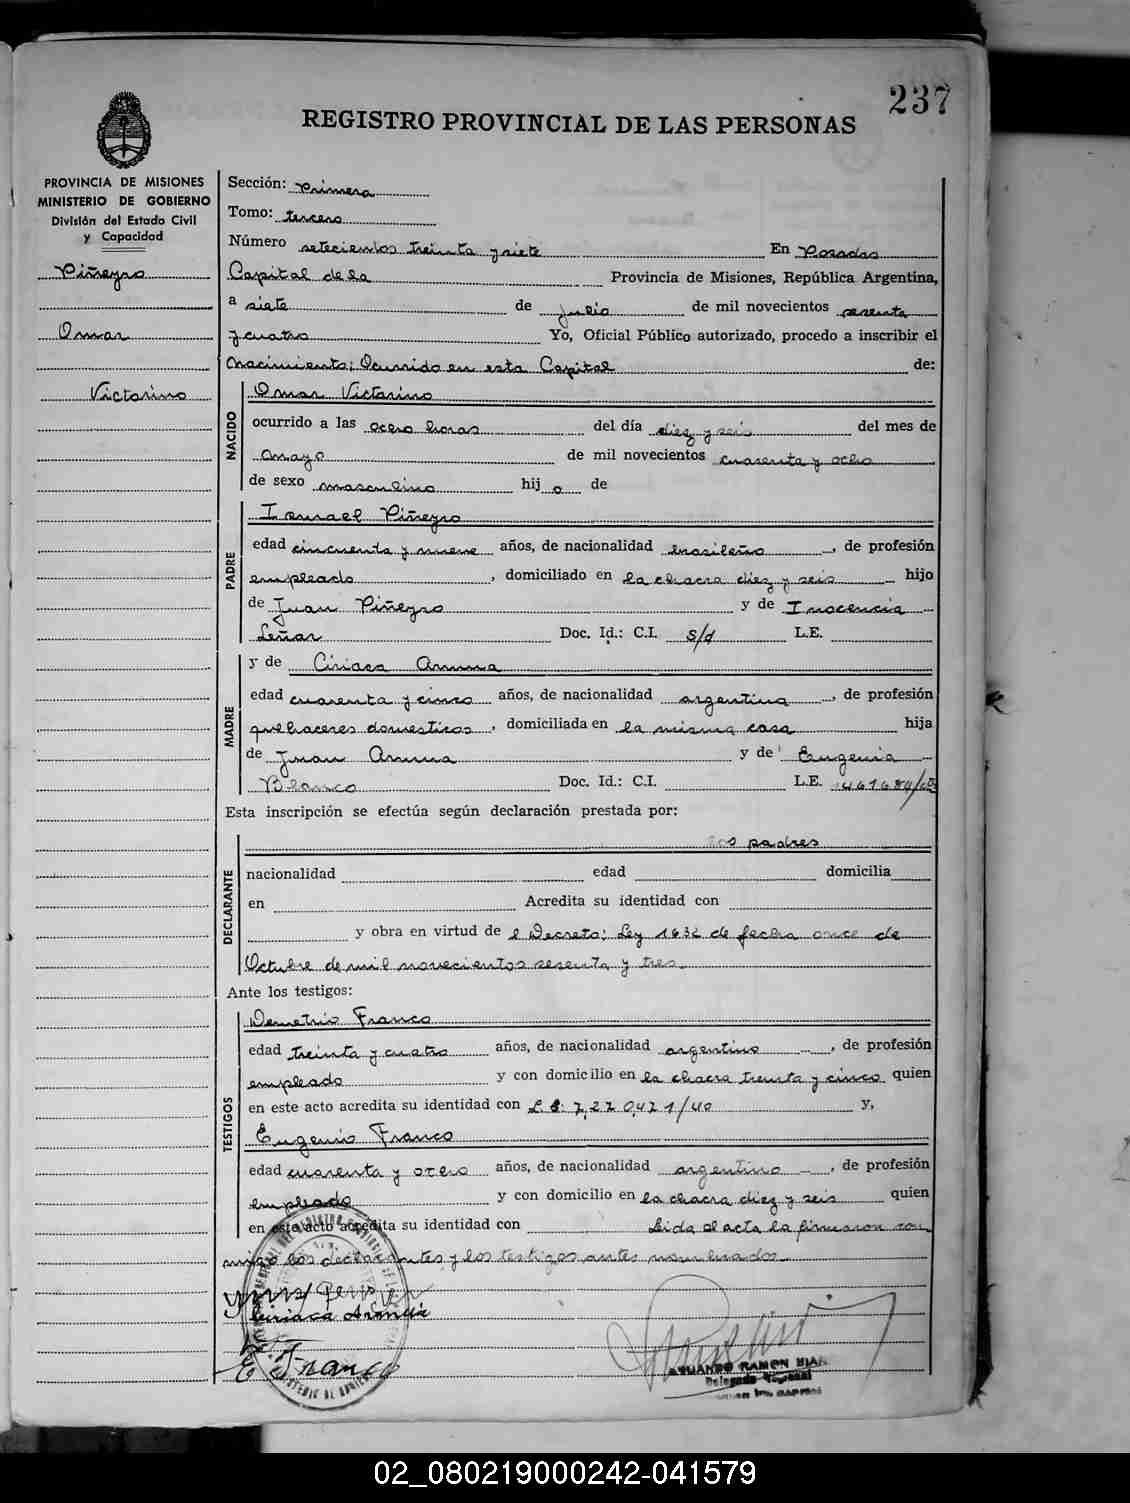 237
REGISTRO PROVINCIAL DE LAS PERSONAS
PROVINCIA DE MISIONES
MINISTERIO DE GOBIERNO
División del Estado Civil
y Capacidad
Piñeyro
Omar
Victorino
Sección: Primera
Tomo: tercero
Número setecientos treinta y siete En Posadas
Capital de la Provincia de Misiones, República Argentina,
a siete de julio de mil novecientos sesenta
y cuatro Yo, Oficial Público autorizado, procedo a inscribir el
nacimiento; Ocurrido en esta Capital de:
NACIDO
Omar Victorino
ocurrido a las ocho horas del día diez y seis del mes de
mayo de mil novecientos cuarenta y ocho
de sexo masculino hij o de
PADRE
Ismael Piñeyro
edad cincuenta y nueve años, de nacionalidad brasileño, de profesión
empleado, domiciliado en la chacra diez y seis hijo
de Juan Piñeyro y de Inocencia
Doc. Id.: C.I. s/d L.E.
MADRE
y de Ciriaca
edad cuarenta y cinco años, de nacionalidad argentina, de profesión
quehaceres domesticos, domiciliada en la misma casa hija
de Juan y de Eugenia
Blanco Doc. Id.: C.I. L.E.
Esta inscripción se efectúa según declaración prestada por:
DECLARANTE
los padres
nacionalidad edad domicilia
en Acredita su identidad con
y obra en virtud de l Decreto; Ley 1632 de fecha once de
Octubre de mil novecientos sesenta y tres
Ante los testigos:
TESTIGOS
Demetrio Franco
edad treinta y cuatro años, de nacionalidad argentino, de profesión
empleado y con domicilio en la chacra treinta y cinco quien
en este acto acredita su identidad con 7,270,471/40 y,
Eugenio Franco
edad cuarenta y ocho años, de nacionalidad argentino, de profesión
empleado y con domicilio en la chacra diez y seis quien
en este acto acredita su identidad con Leida el acta la firmaron con
migo los declarantes y los testigos antes nombrados
Ciriaca
E Franco
RAMON
Delegado
02_080219000242-041579